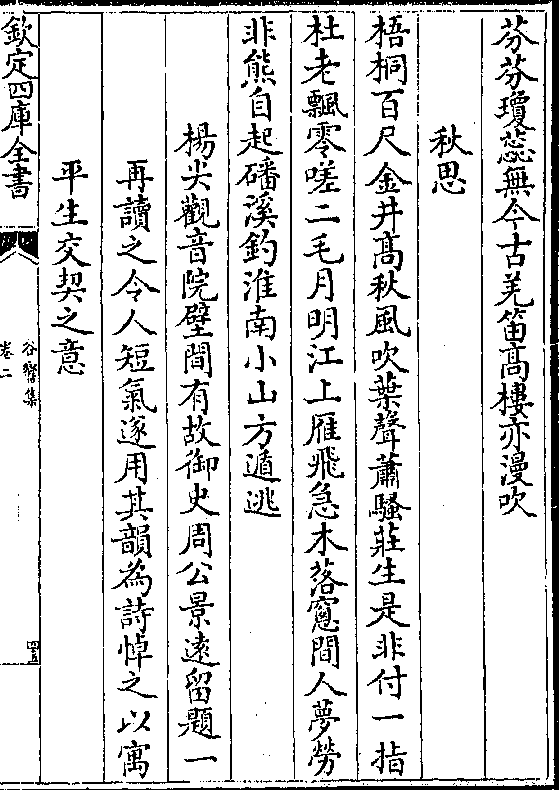 芬芬瓊蕊無今古羌笛髙樓亦漫吹
秋思
梧桐百尺金井髙秋風吹葉聲蕭騷莊生是非付一指
杜老飄零嗟二毛月明江上雁飛急木落窻間人夢勞
非熊自起磻溪釣淮南小山方遁逃
楊尖觀音院壁間有故御史周公景遠留題一
再讀之令人短氣遂用其韻為詩悼之以寓
平生交契之意
欽定四庫全書
谷響集
卷二